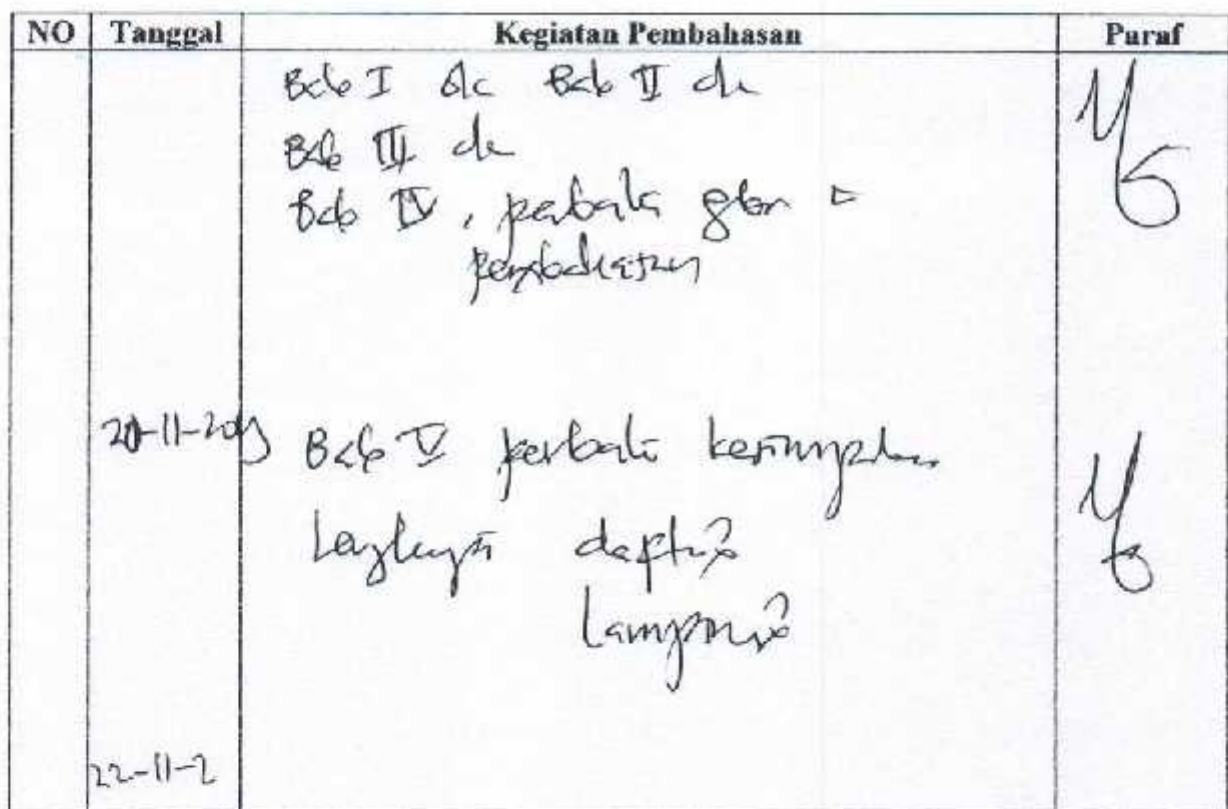 NO Tanggal Kegiatan Pembahasan Paraf
Bab I ok Bab II ok
Bab III ok
Bab IV, perbaiki
pembahasan
Bab V perbaiki kesimpulan
Lengkapi daftar2
Lampiran2
22-11-2